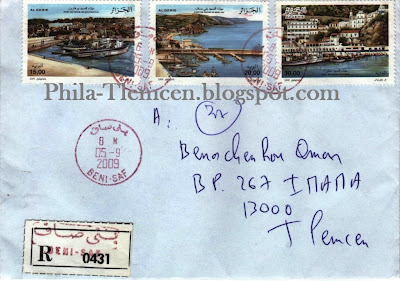 ALGERIE
الجزائر
15.00
ALGERIE
الجزائر
20.00
30.00
Phila-Tlemcen.blogspot.com
بني صاف
8 M
05-9
2009
BENI-SAF
A:
Benachenhou Omar
BP. 267 IMAMA
13000
Tlemcen
بني صاف
BENI-SAF
R 0431